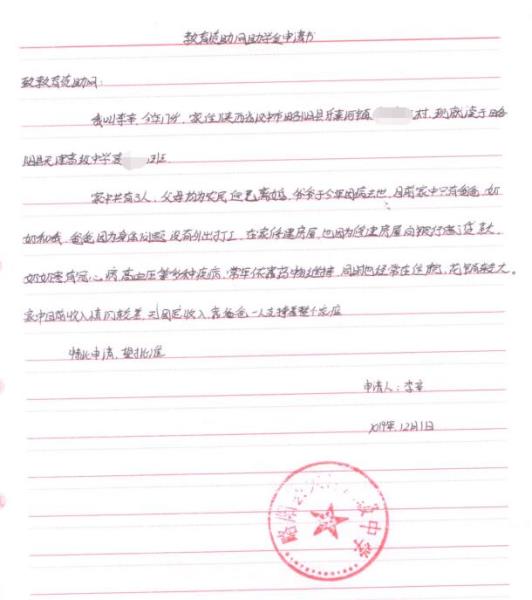 教育资助网助学金申请书
致教育资助网:
我叫李 ,今年17岁,家住陕西省汉中市略阳县乐素河镇 村,现就读于略
阳县天津高级中学高 班
家中共有3人,父母均为农民但已离婚,爷爷于今年因病去世,目前家中只有爸爸、奶
奶和我,爸爸因为身体问题没有外出打工,在家修建房屋,也因为修建房屋向银行借了贷款,
奶奶患有冠心病高血压等多种疾病,常年依靠药物维持,同时也经常在住院,花费较大。
家中目前收入情况较差,无固定收入,靠爸爸一人支撑着整个家庭
特此申请,望批准
申请人:李
2019年.12月1日
略阳 级中学